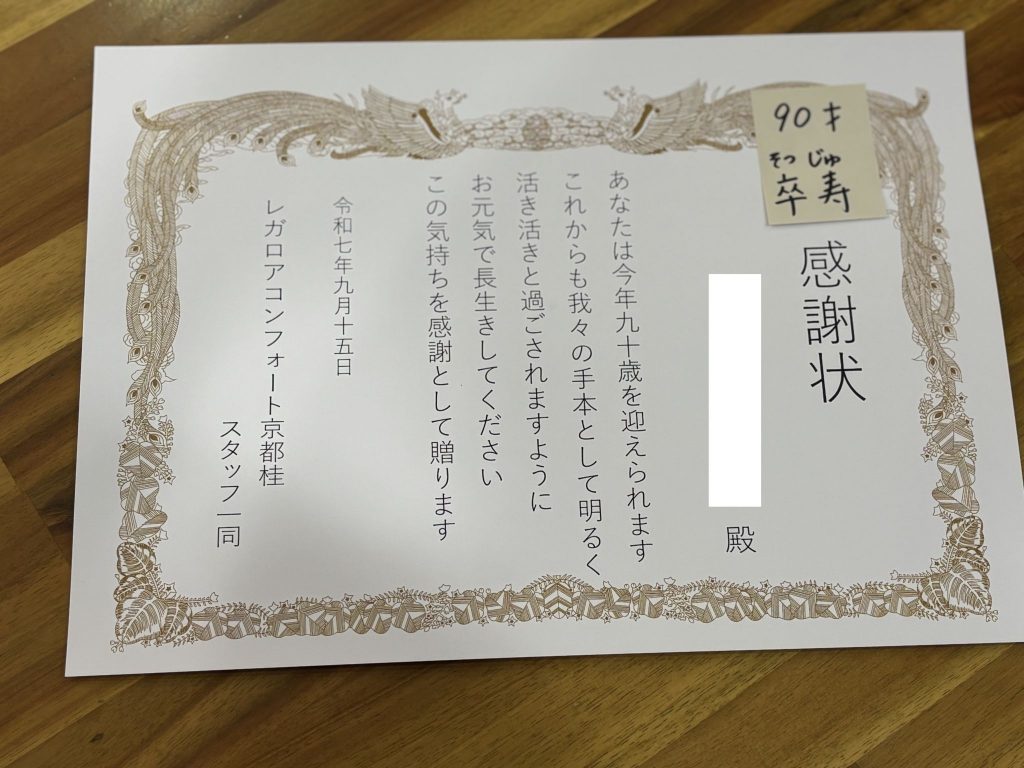 90才
そつじゅ
卒寿
感謝状
殿
あなたは今年九十歳を迎えられます
これからも我々の手本として明るく
活き活きと過ごされますように
お元気で長生きしてください
この気持ちを感謝として贈ります
令和七年九月十五日
レガロアコンフォート京都桂
スタッフ一同